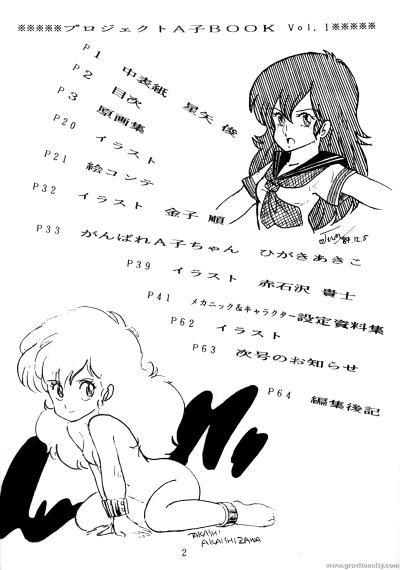 ※※※※※プロジェクトA子BOOK Vol.1※※※※※
P1 中表紙 星矢 俊
P2 目次
P3 原画集
P20 イラスト
P21 絵コンテ
P32 イラスト 金子 順
P33 がんばれA子ちゃん ひがきあきこ
P39 イラスト 赤石沢 貴士
P41 メカニック&キャラクター設定資料集
P62 イラスト
P63 次号のお知らせ
P64 編集後記
Jun 89.12.5
TAKASHI
AKAISHIZAWA
2
www.gravitoncity.com